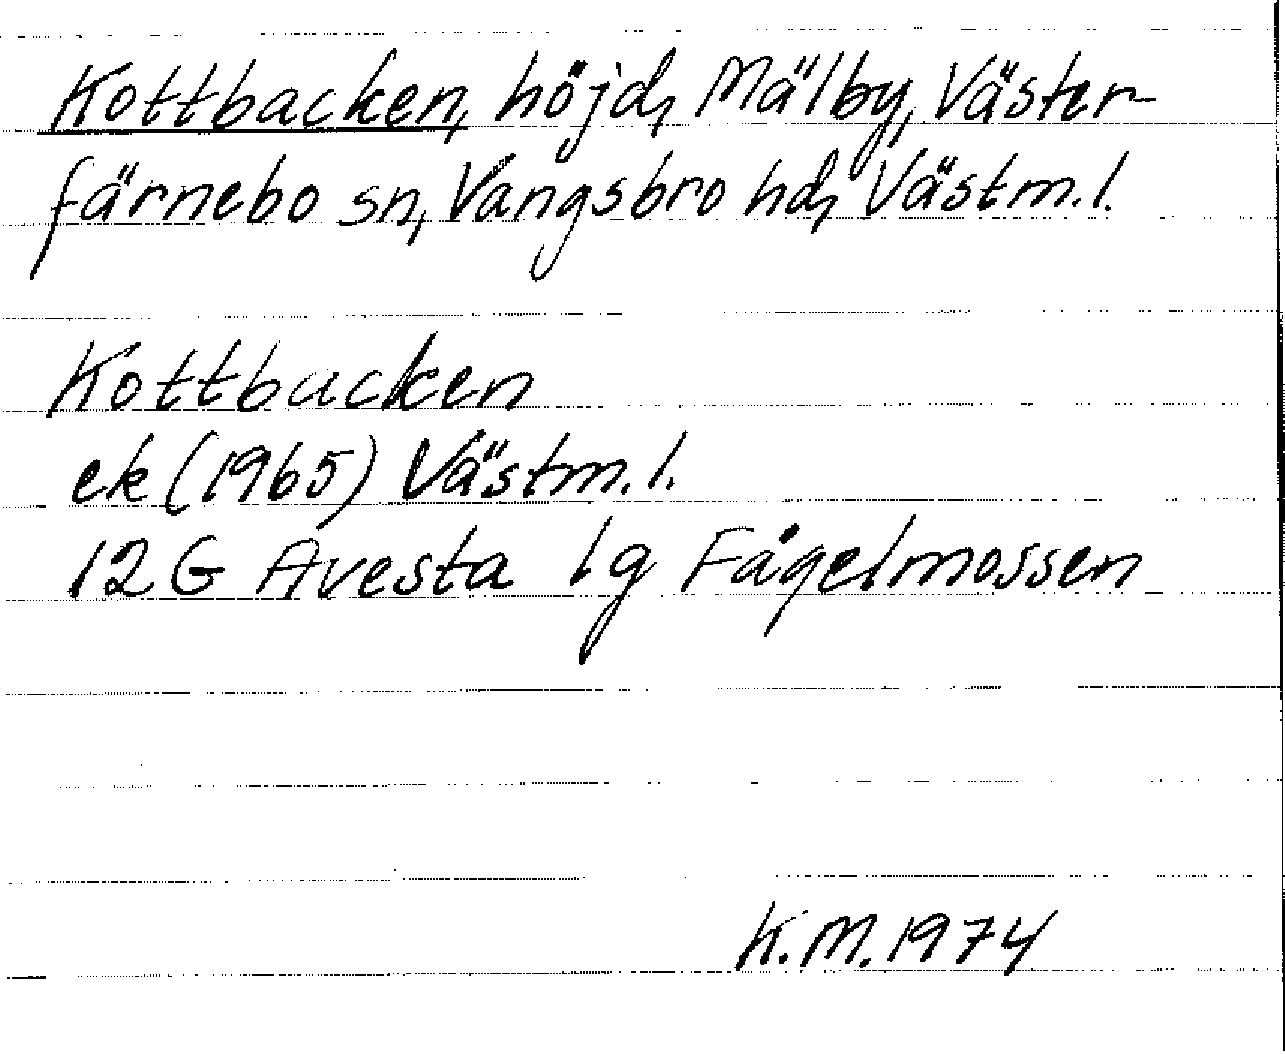 Kottbacken, höjd, Mälby, Väster-
färnebo sn, Vangsbro hd, Västm.l.
Kottbacken
ek (1965) Västm.l.
12G Avesta 1g Fågelmossen
K.M.1974